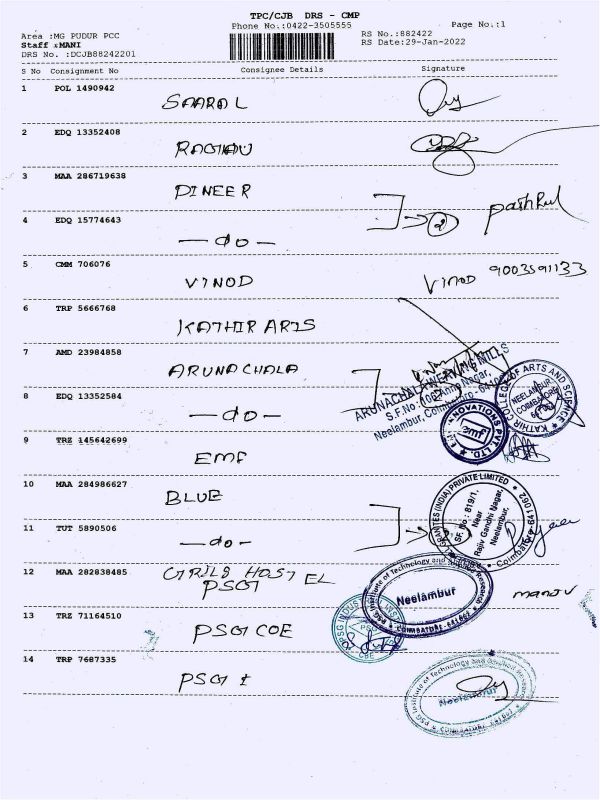 TPC/CJB DRS - CMP
Phone No.:0422-3505555 Page No.:1
Area :MG PUDUR PCC RS No.:882422
Staff :MANI RS Date:29-Jan-2022
DRS No. :DCJB88242201
S No Consignment No Consignee Details Signature
1 POL 1490942
2 EDQ 13352408
3 MAA 286719638 PINEER
4 EDQ 15774643 — do — 2
5 CMM 706076 VINOD VINOD 9003591133
6 TRP 5666768 KATHIR ARTS
7 AMD 23984858 ARUNACHALA
ARUNACHALA WEAVING MILLS
Neelambur, Coimbatore
KATHIR COLLEGE OF ARTS AND SCIENCE
NEELAMBUR
COIMBATORE
8 EDQ 13352584 — do —
NOVATIONS PVT. LTD.
emf
9 TRZ 145642699 EMF
10 MAA 284986627 BLUE
(INDIA) PRIVATE LIMITED
SF. No : 819/1,
Near
Rajiv Gandhi Nagar,
Neelambur,
Coimbatore
11 TUT 5890506 — do —
12 MAA 282838485 GIRLS HOSTEL
PSGI
PSG Institute of Technology and Applied Research
Neelambur
COIMBATORE
13 TRZ 71164510 PSG COE
PSG INDUS
PSG
14 TRP 7687335 PSG I
PSG Institute of Technology and Applied Research
Neelambur